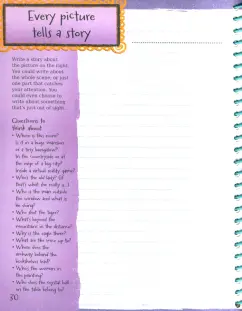 Every picture
tells a story
Write a story about
the picture on the right.
You could write about
the whole scene, or just
one part that catches
your attention. You
could even choose to
write about something
that's just out of sight...
Questions to
think about
• Where is this room?
Is it in a huge mansion
or a tiny bungalow?
In the countryside or at
the edge of a big city?
Inside a virtual reality game?
• Who's the old lady? (If
that's what she really is...)
• Who is the man outside
the window and what is
he doing?
• Who shot the tiger?
• What's beyond the
mountains in the distance?
• Why is the eagle there?
• What are the crows up to?
• Where does the
archway behind the
bookshelves lead?
• Who's the woman in
the painting?
• Who does the crystal ball
on the table belong to?
30